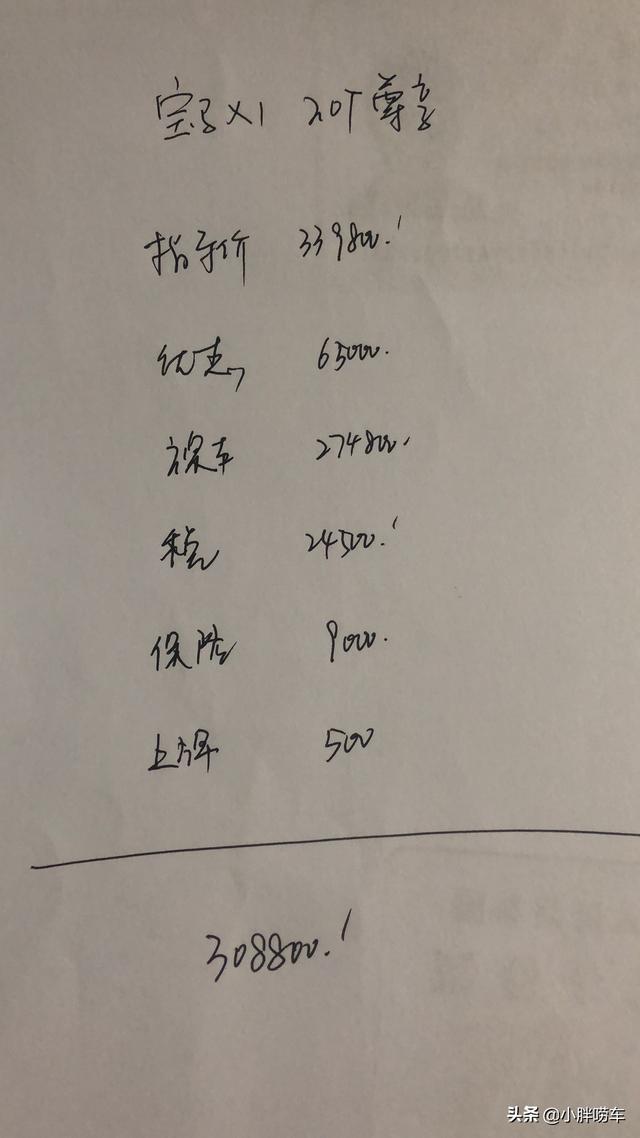 宝马X1 20T尊享
指导价 339800.
优惠 65000.
裸车 274800.
税 24500.
保险 9000.
上牌 500
308800.
头条 @小胖唠车